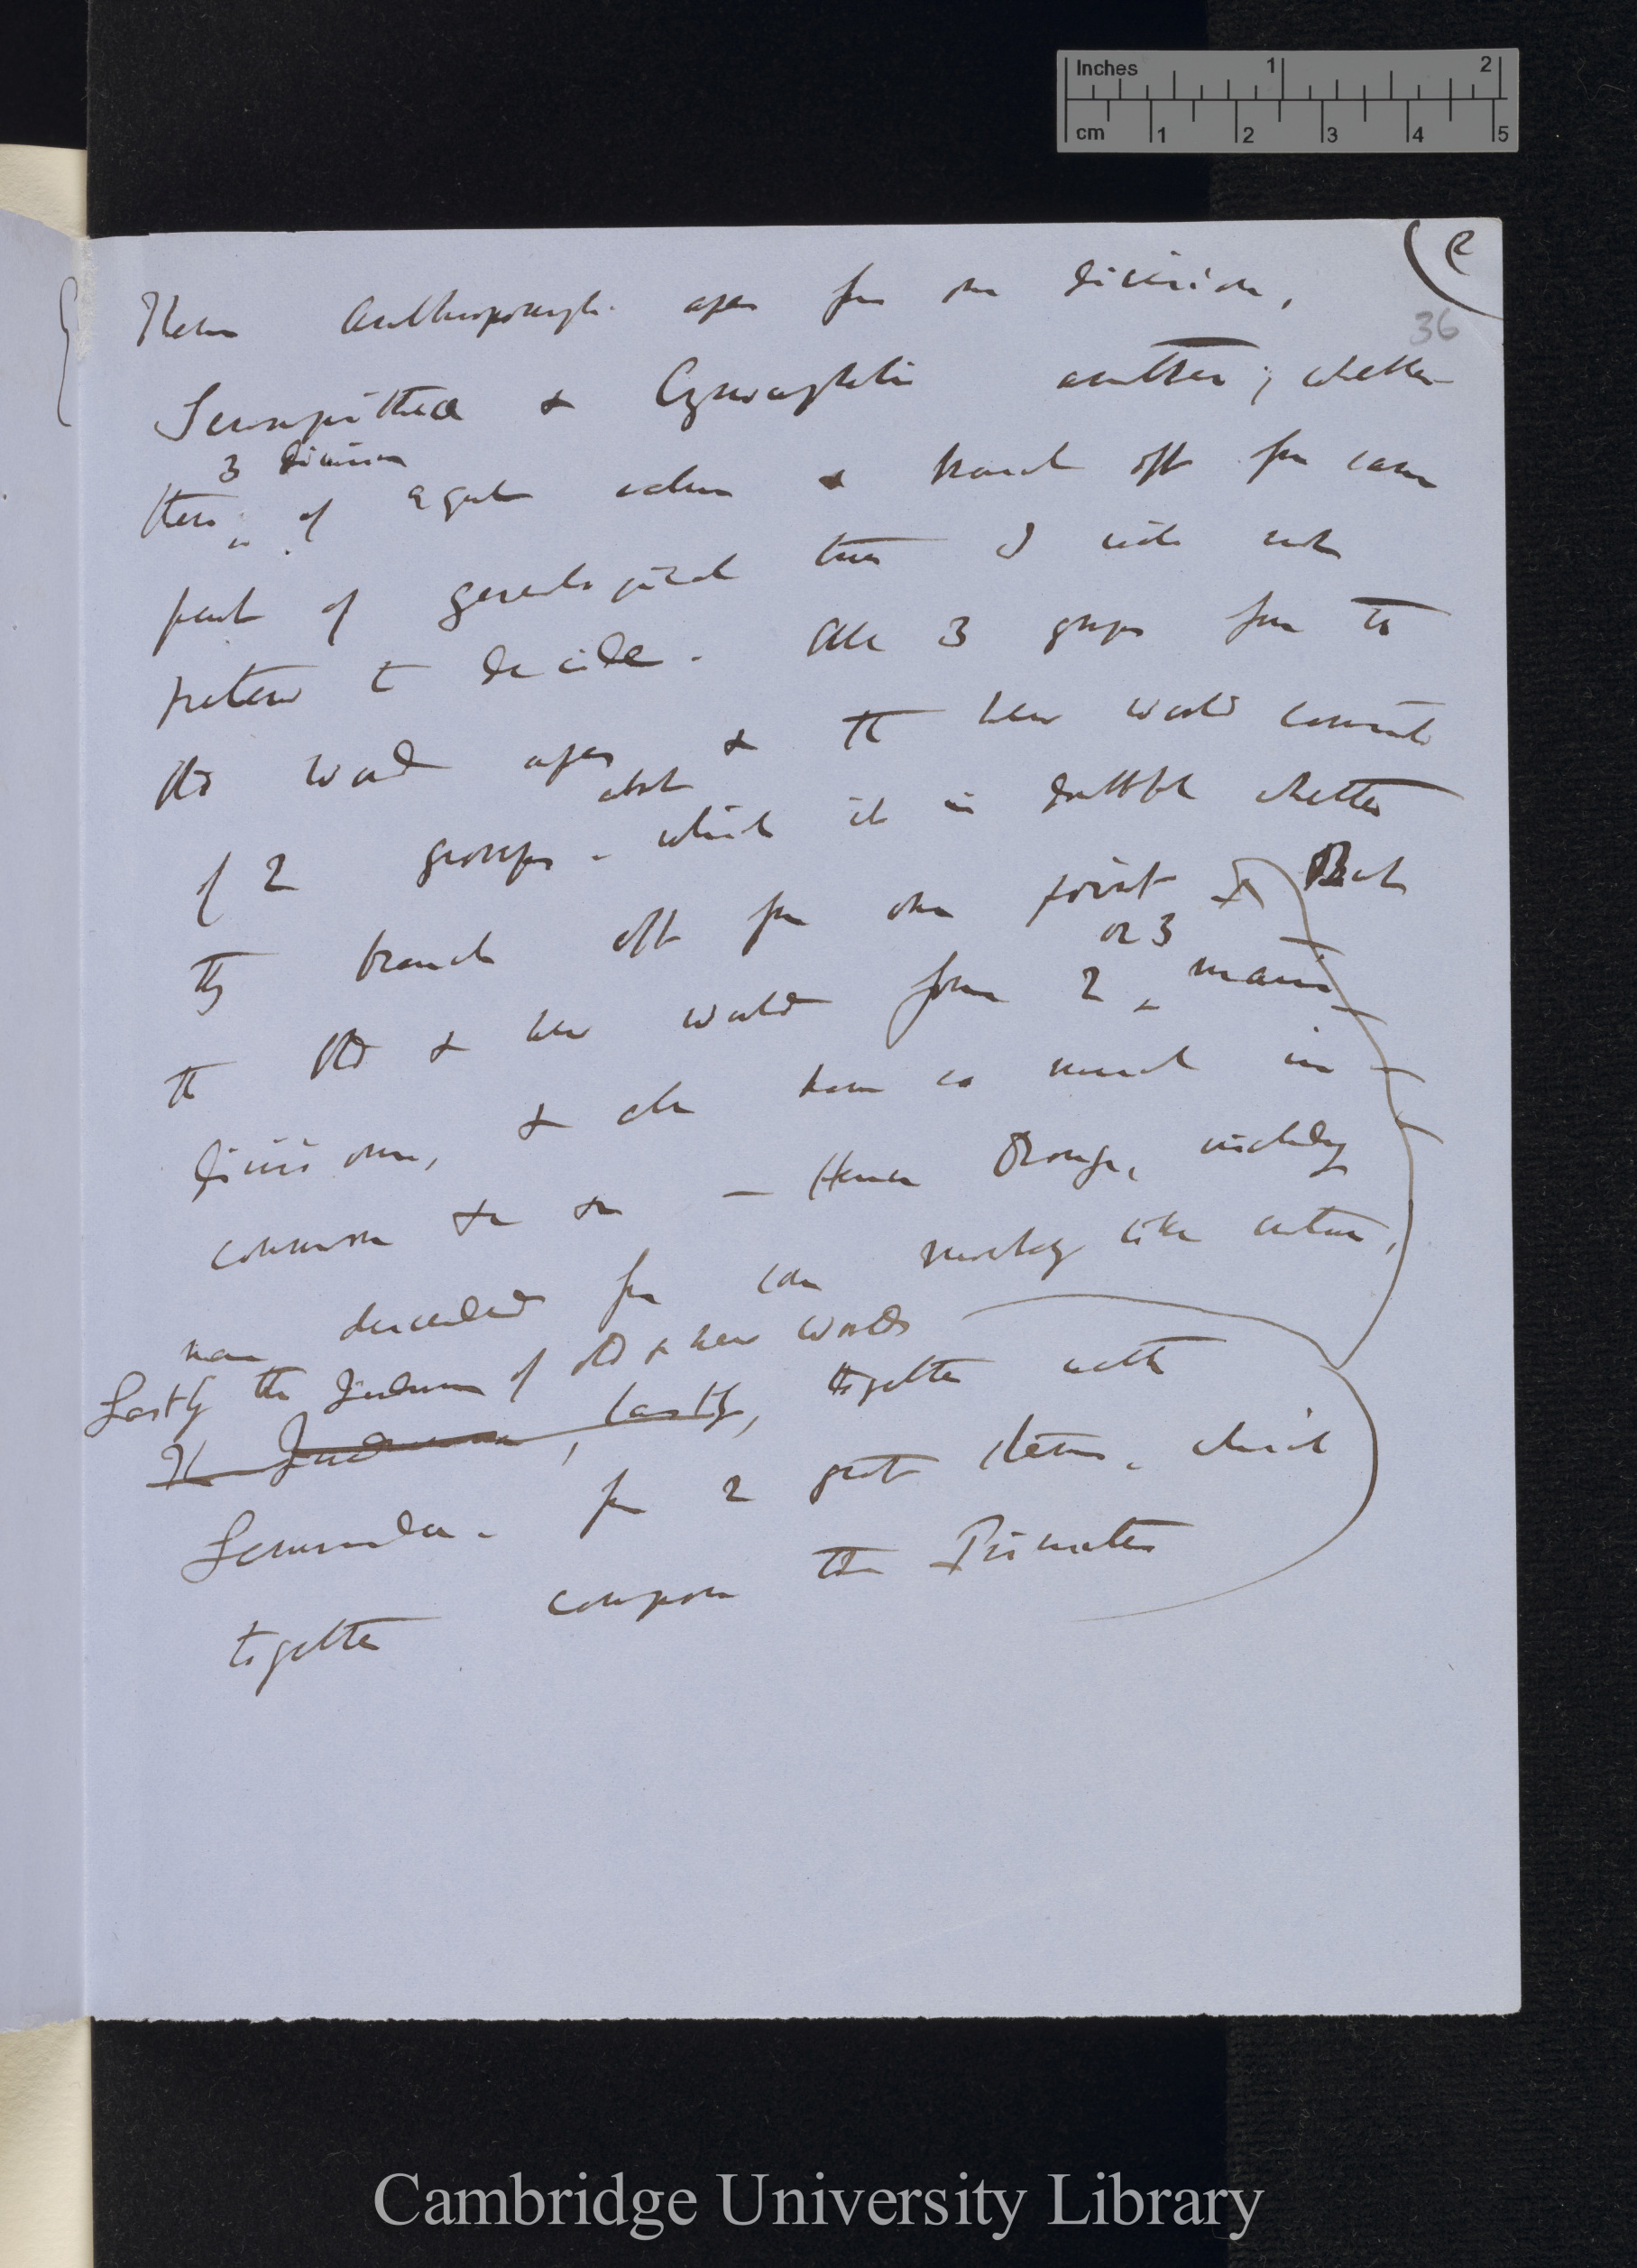 Inches 1 2
cm 1 2 3 4 5
(2
36
These Anthropomorph. apes form one division,
Semnopithecus & Cynocephali another; whether
3 divisions
these of equal value & branch off from same
part of genealogical tree I will not
pretend to decide. All 3 groups form the
Old World apes & the New World consists
about
of 2 groups, which it is doubtful whether
they branch off from one point But
or 3
the Old & New World form 2 main
divisions, & all have so much in
common &c &c — Hence Orange, including
man descended from some monkey like creature,
Lastly the Quadrumana of Old & New Worlds
The Quadrumana, lastly, together with
Lemuridæ form 2 great stems, which
together compose the Primates
Cambridge University Library